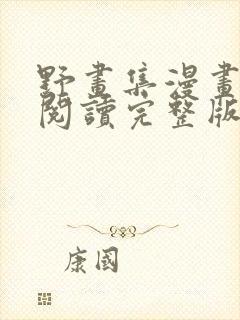 野畫集漫畫
閱讀完整版
康國